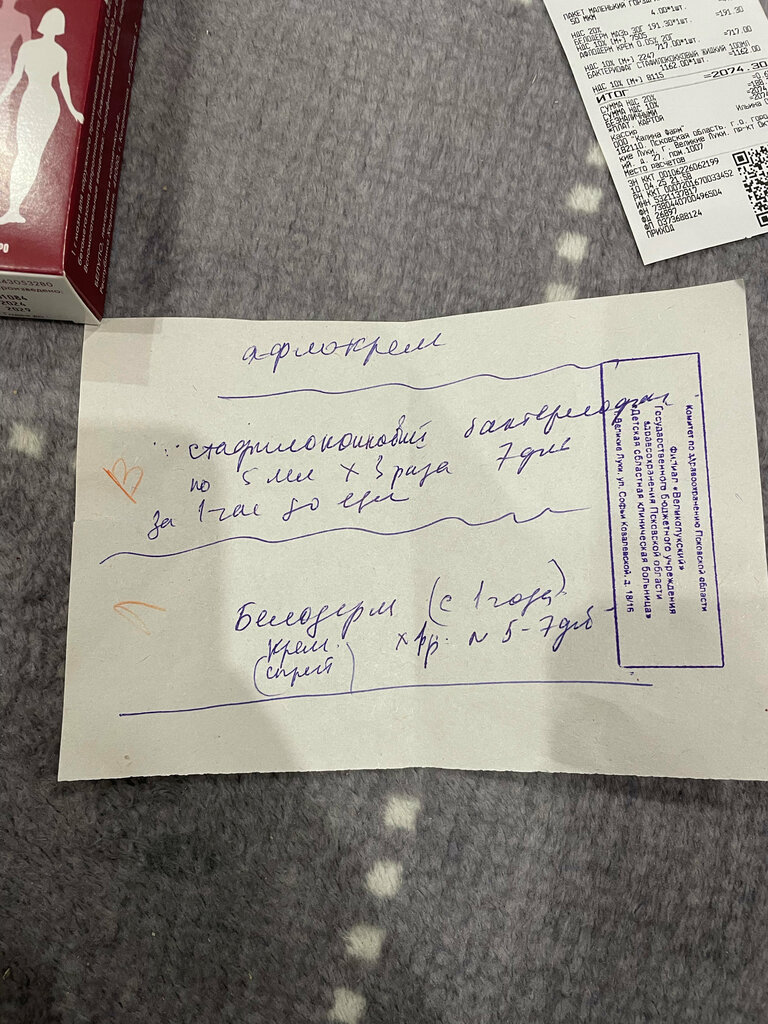 ПАКЕТ МАЛЕНЬКИЙ
50 МКМ
4.00*1шт.
=191.30
НДС 20%
БЕЛОДЕРМ МАЗЬ 30Г 191.30*1шт.
НДС 10% [М+] 7505
=717.00
АФЛОДЕРМ КРЕМ 0.05% 20Г
717.00*1шт.
=1162.00
НДС 10% [М+] 2247
БАКТЕРИОФАГ СТАФИЛОКОККОВЫЙ ЖИДКИЙ 100МЛ
1162.00*1шт.
НДС 10% [М+] 8115
ИТОГ
=2074.30
СУММА НДС 20%
СУММА НДС 10%
БЕЗНАЛИЧНЫМИ
*ПЛАТ. КАРТОЙ
Кассир
Ильина
ООО "Калина Фарм"
182110, Псковская область, г.о. горо
кие Луки, г. Великие Луки, пр-кт Ок
ий, д. 27, пом.1007
Место расчетов
ЗН ККТ 00106226062199
10.04.25 21:58
РН ККТ 0007201670033452
ИНН 5321137817
ФН 7380440700496504
ФД 26897
ФП 0373688124
ПРИХОД
43053280
роизведено:
01084
2024
2029
афлокрем
В
стафилококковый бактериофаг
по 5 мл х 3 раза 7 дней
за 1 час до еды
Белодерм (с 1 года)
крем
(спрей)
х 1 р. N 5-7 дней
Комитет по здравоохранению Псковской области
Филиал «Великолукский»
Государственного бюджетного учреждения
здравоохранения Псковской области
«Детская областная клиническая больница»
г. Великие Луки, ул. Софьи Ковалевской, д. 18/16